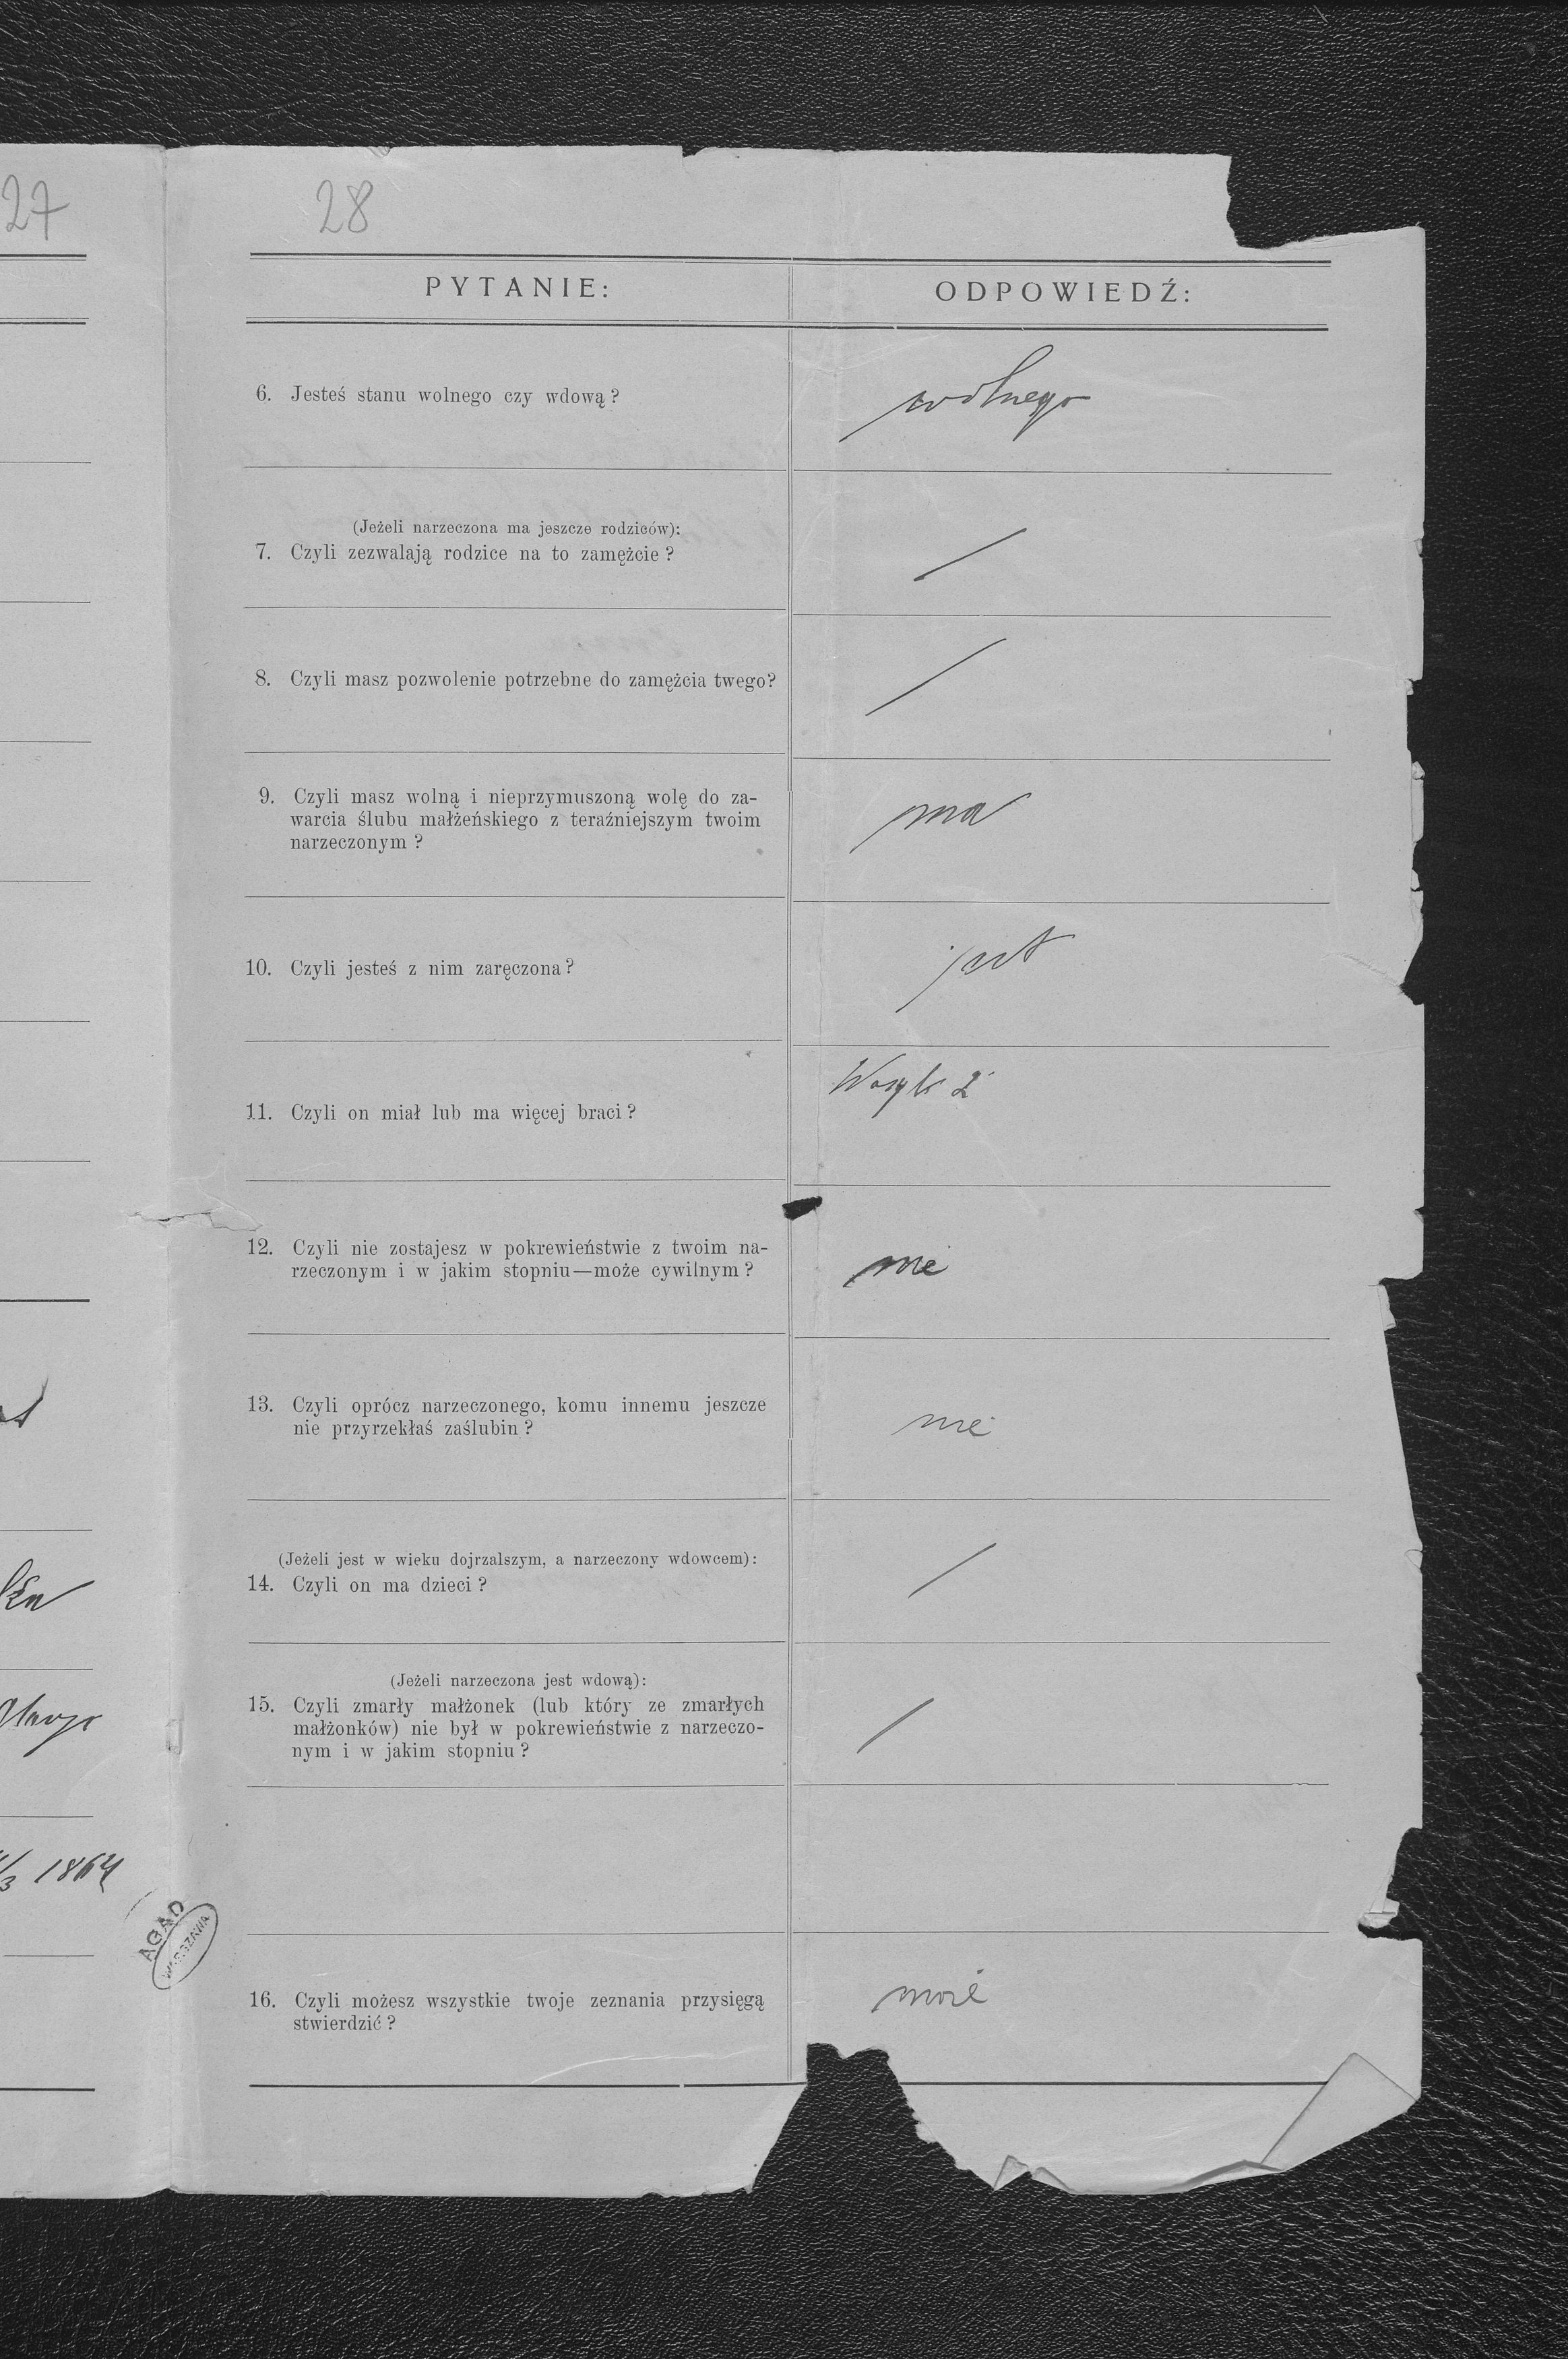 27
28
PYTANIE:
ODPOWIEDŹ:
6. Jesteś stanu wolnego czy wdową?
wolnego
(Jeżeli narzeczona ma jeszcze rodziców):
7. Czyli zezwalają rodzice na to zamężcie?
/
8. Czyli masz pozwolenie potrzebne do zamężcia twego?
/
9. Czyli masz wolną i nieprzymuszoną wolę do za-
warcia ślubu małżeńskiego z teraźniejszym twoim
narzeczonym?
ma
10. Czyli jesteś z nim zaręczona?
jest
11. Czyli on miał lub ma więcej braci?
2
12. Czyli nie zostajesz w pokrewieństwie z twoim na-
rzeczonym i w jakim stopniu—może cywilnym?
nie
13. Czyli oprócz narzeczonego, komu innemu jeszcze
nie przyrzekłaś zaślubin?
nie
(Jeżeli jest w wieku dojrzalszym, a narzeczony wdowcem):
14. Czyli on ma dzieci?
/
(Jeżeli narzeczona jest wdową):
15. Czyli zmarły małżonek (lub który ze zmarłych
małżonków) nie był w pokrewieństwie z narzeczo-
nym i w jakim stopniu?
/
1864
AGAD
WARSZAWA
16. Czyli możesz wszystkie twoje zeznania przysięgą
stwierdzić?
może